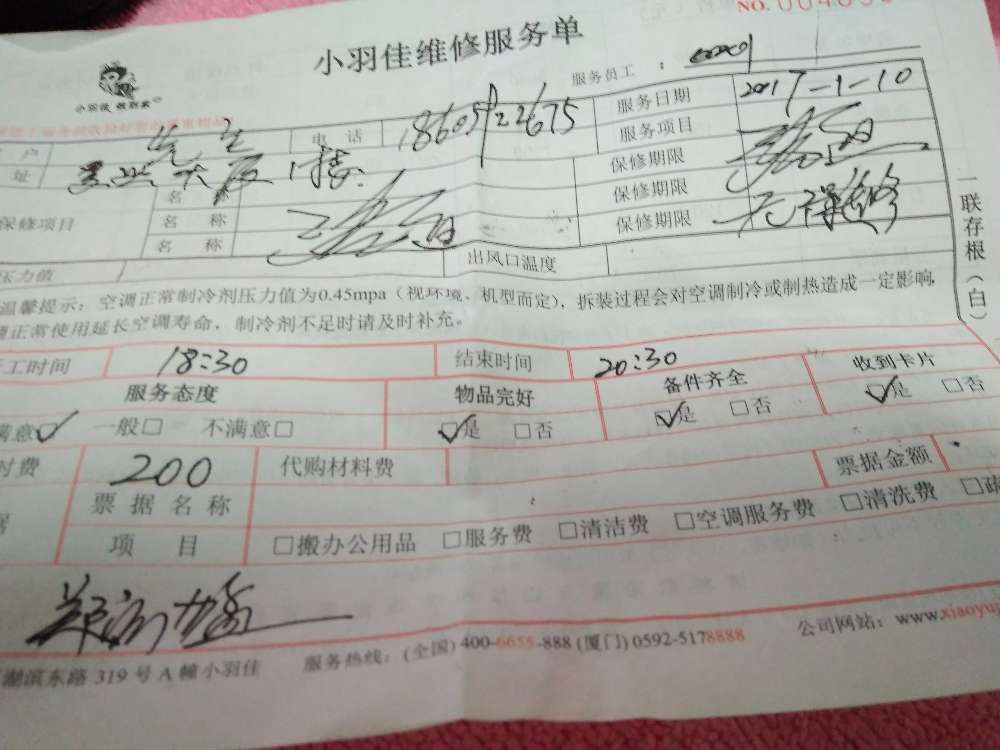 NO.
小羽佳维修服务单
小羽佳 做到家
服务员工：
户 先生 电话 18605922675 服务日期 2017-1-10
址 大厦 楼 服务项目
保修项目 名称 保修期限
名称 保修期限
名称 保修期限
压力值 出风口温度
温馨提示：空调正常制冷剂压力值为0.45mpa（视环境、机型而定），拆装过程会对空调制冷或制热造成一定影响，
正常使用延长空调寿命，制冷剂不足时请及时补充。
工时间 18:30 结束时间 20:30
服务态度 物品完好 备件齐全 收到卡片
满意☑ 一般□ 不满意□ ☑是 □否 ☑是 □否 ☑是 □否
时费 200 代购材料费 票据金额
票据名称
项目 □搬办公用品 □服务费 □清洁费 □空调服务费 □清洗费 □疏
湖滨东路 319 号 A 幢小羽佳 服务热线：(全国) 400-6655-888 (厦门) 0592-5178888 公司网站：www.xiaoyu
一联存根（白）